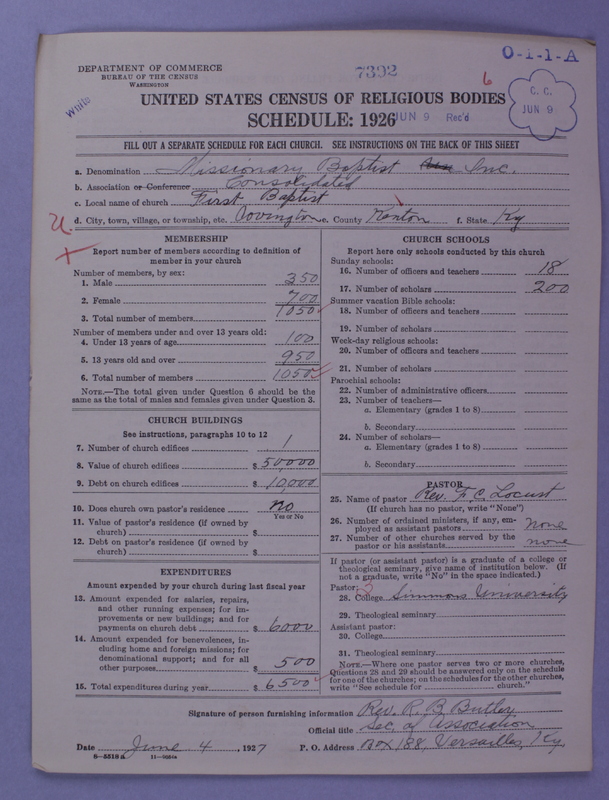 O-1-1-A
DEPARTMENT OF COMMERCE
BUREAU OF THE CENSUS
WASHINGTON
7392
6
White
C. C.
JUN 9
UNITED STATES CENSUS OF RELIGIOUS BODIES
SCHEDULE: 1926
JUN 9 Rec'd
FILL OUT A SEPARATE SCHEDULE FOR EACH CHURCH. SEE INSTRUCTIONS ON THE BACK OF THIS SHEET
a. Denomination Missionary Baptist Inc.
b. Association or Conference Consolidated
c. Local name of church First Baptist
d. City, town, village, or township, etc. Covington e. County Kenton f. State Ky
MEMBERSHIP
Report number of members according to definition of
member in your church
Number of members, by sex:
1. Male 350
2. Female 700
3. Total number of members 1050
Number of members under and over 13 years old:
4. Under 13 years of age 100
5. 13 years old and over 950
6. Total number of members 1050
NOTE.—The total given under Question 6 should be the
same as the total of males and females given under Question 3.
CHURCH BUILDINGS
See instructions, paragraphs 10 to 12
7. Number of church edifices 1
8. Value of church edifices $ 50,000
9. Debt on church edifices $ 10,000
10. Does church own pastor's residence no
Yes or No
11. Value of pastor's residence (if owned by
church) $
12. Debt on pastor's residence (if owned by
church) $
EXPENDITURES
Amount expended by church during last fiscal year
13. Amount expended for salaries, repairs,
and other running expenses; for im-
provements or new buildings; and for
payments on church debt $ 6000
14. Amount expended for benevolences, in-
cluding home and foreign missions; for
denominational support; and for all
other purposes $ 500
15. Total expenditures during year $ 6500
CHURCH SCHOOLS
Report here only schools conducted by this church
Sunday schools:
16. Number of officers and teachers 18
17. Number of scholars 200
Summer vacation Bible schools:
18. Number of officers and teachers
19. Number of scholars
Week-day religious schools:
20. Number of officers and teachers
21. Number of scholars
Parochial schools:
22. Number of administrative officers
23. Number of teachers—
a. Elementary (grades 1 to 8)
b. Secondary
24. Number of scholars—
a. Elementary (grades 1 to 8)
b. Secondary
PASTOR
25. Name of pastor Rev. F. C. Locust
(If church has no pastor, write "None")
26. Number of ordained ministers, if any, em-
ployed as assistant pastors none
27. Number of other churches served by the
pastor or his assistants none
If pastor (or assistant pastor) is a graduate of a college or
theological seminary, give name of institution below. (If
not a graduate, write "No" in the space indicated.)
Pastor:
28. College Simmons University
29. Theological seminary
Assistant pastor:
30. College
31. Theological seminary
NOTE.—Where one pastor serves two or more churches,
Questions 28 and 29 should be answered only on the schedule
for one of the churches; on the schedules for the other churches,
write "See schedule for church."
Signature of person furnishing information Rev. R. B. Butler
Official title Sec. of Association
Date June 4, 1927 P. O. Address Box 188, Versailles, Ky.
8—5518 a